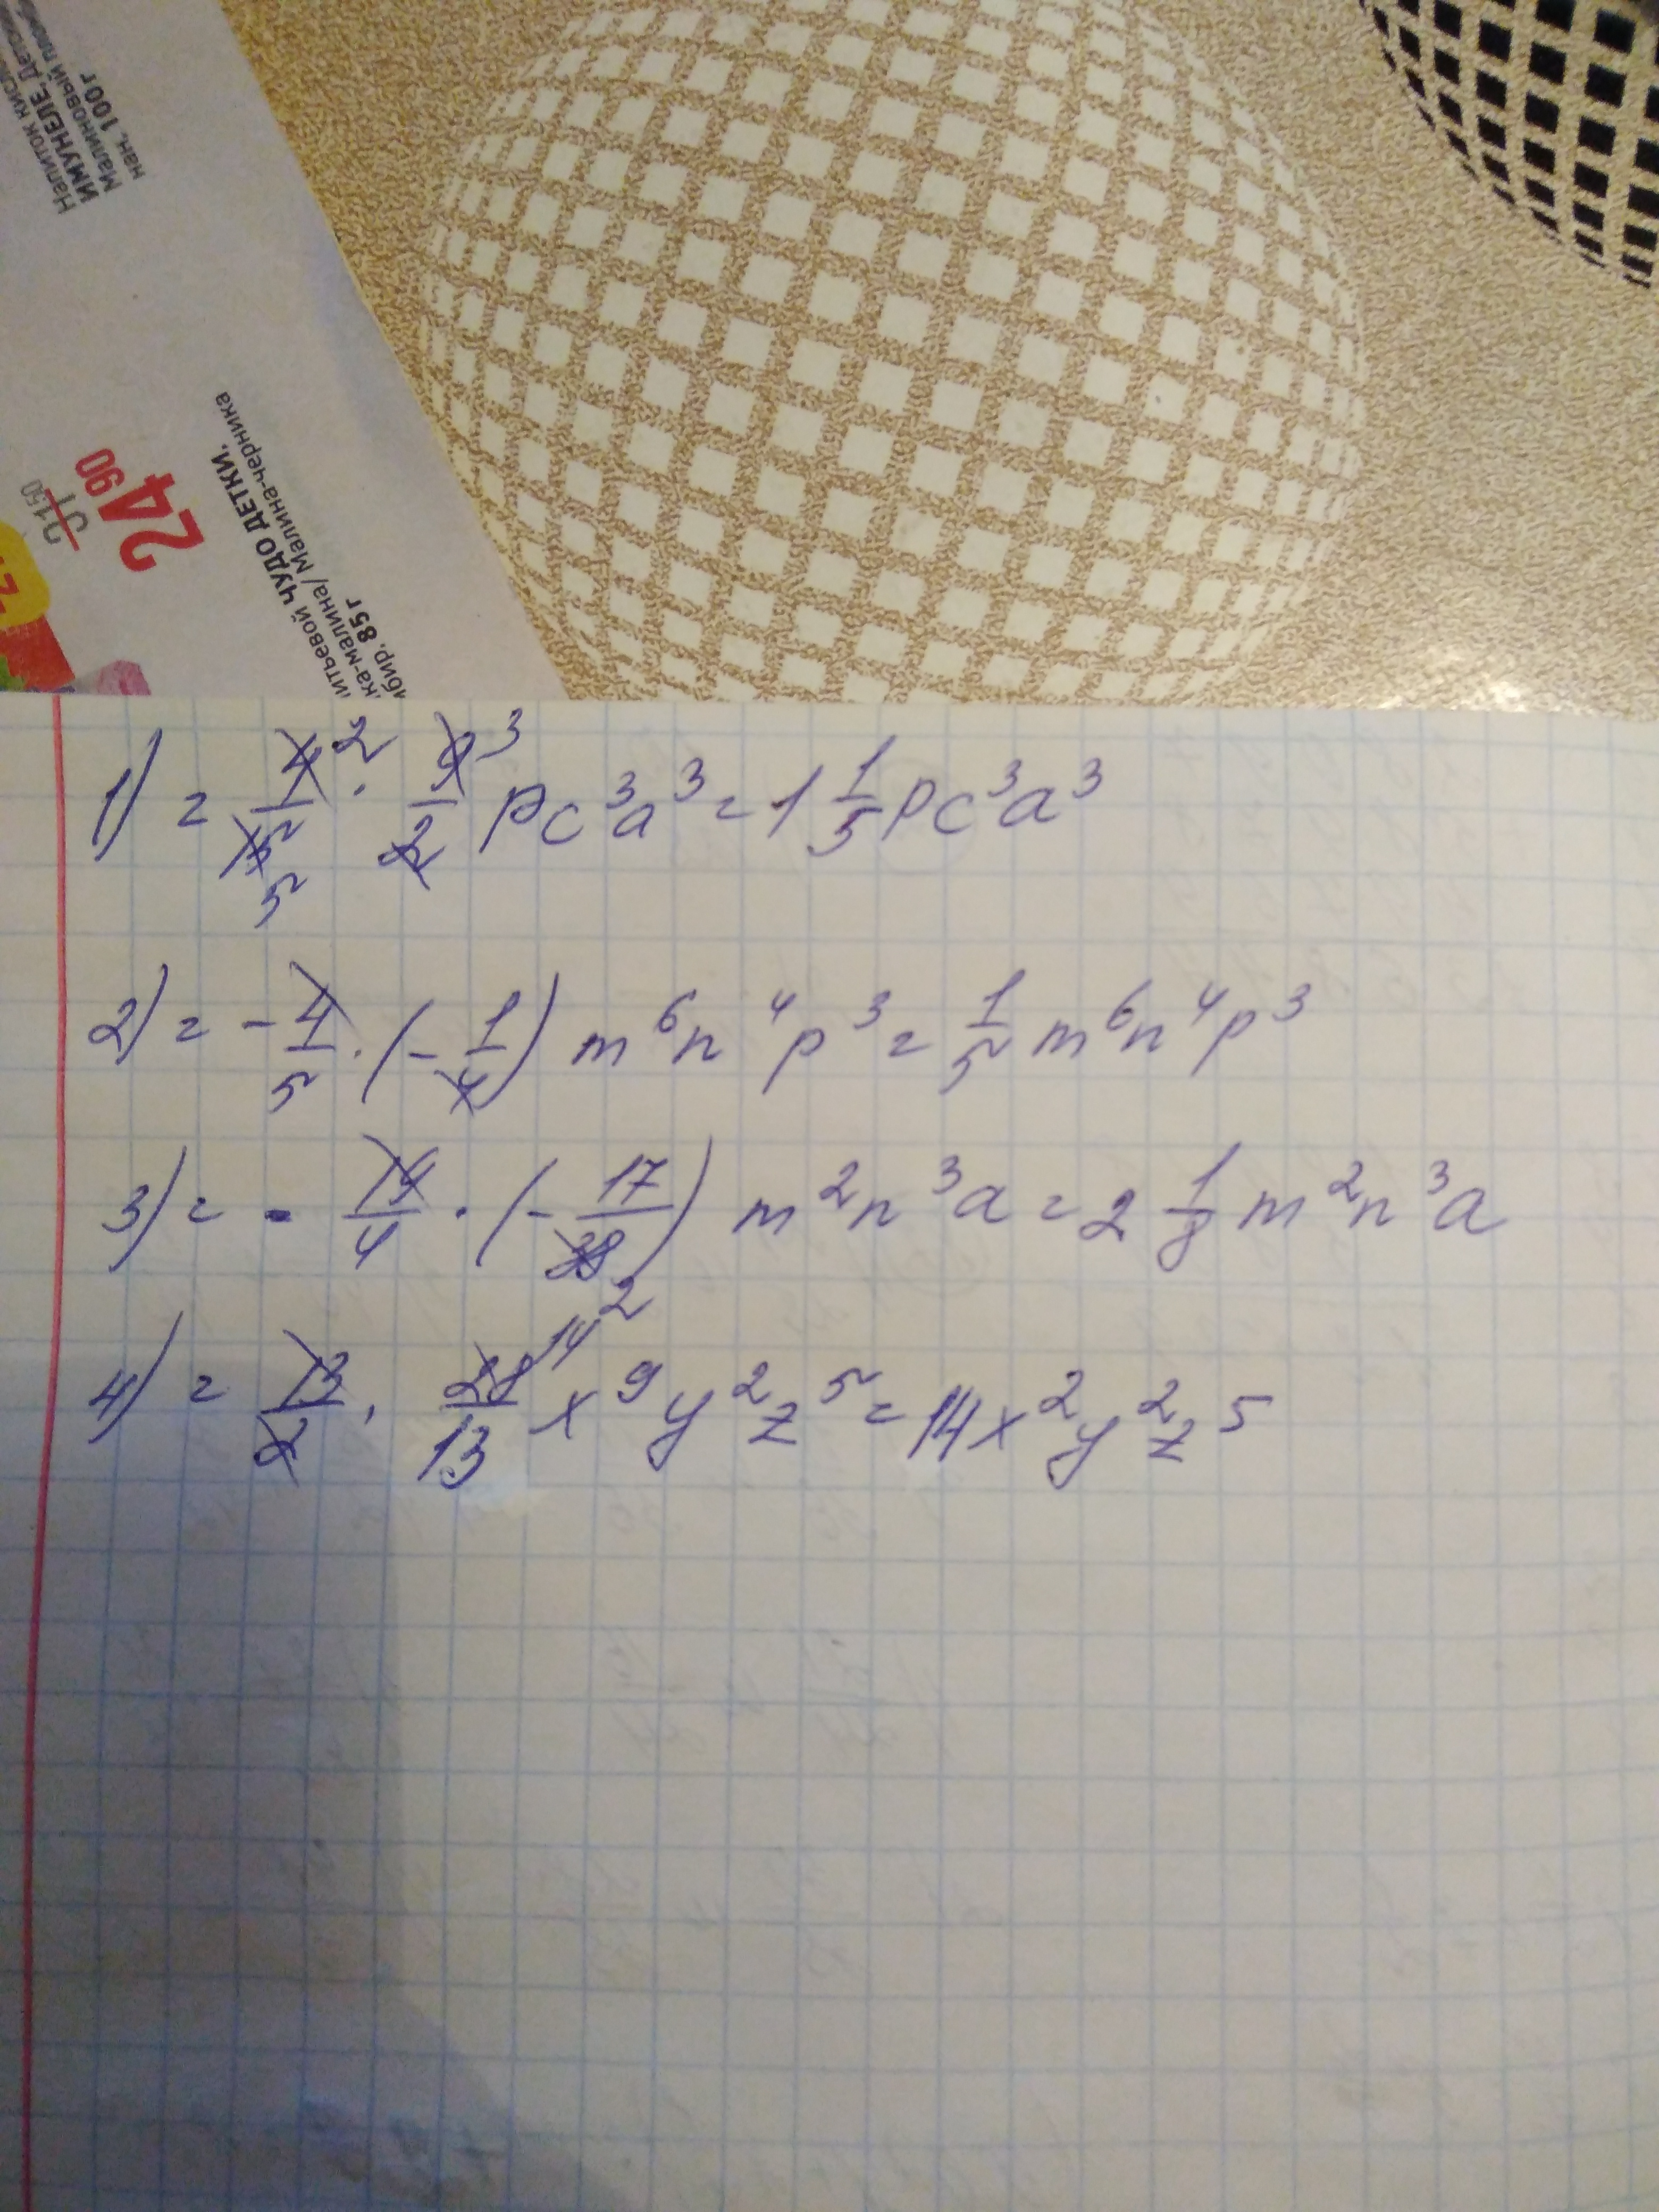 Напиток кисло
ИМУНЕЛЕ, Детский
Малиновый пломбир
нап, 100 г
24 90
31 50
итьевой ЧУДО ДЕТКИ,
ка-малина/ Малина-черника
ибир, 85 г
1) = 4/15 2 5 · 9/2 3 pc³a³ = 1 1/5 pc³a³
2) = - 4/5 · (- 1/4) m⁶n⁴p³ = 1/5 m⁶n⁴p³
3) = - 14/4 · (- 17/28 2) m²n³a = 2 1/8 m²n³a
4) = 13/2 · 28/13 14 x⁹y²z⁵ = 14x²y²z⁵